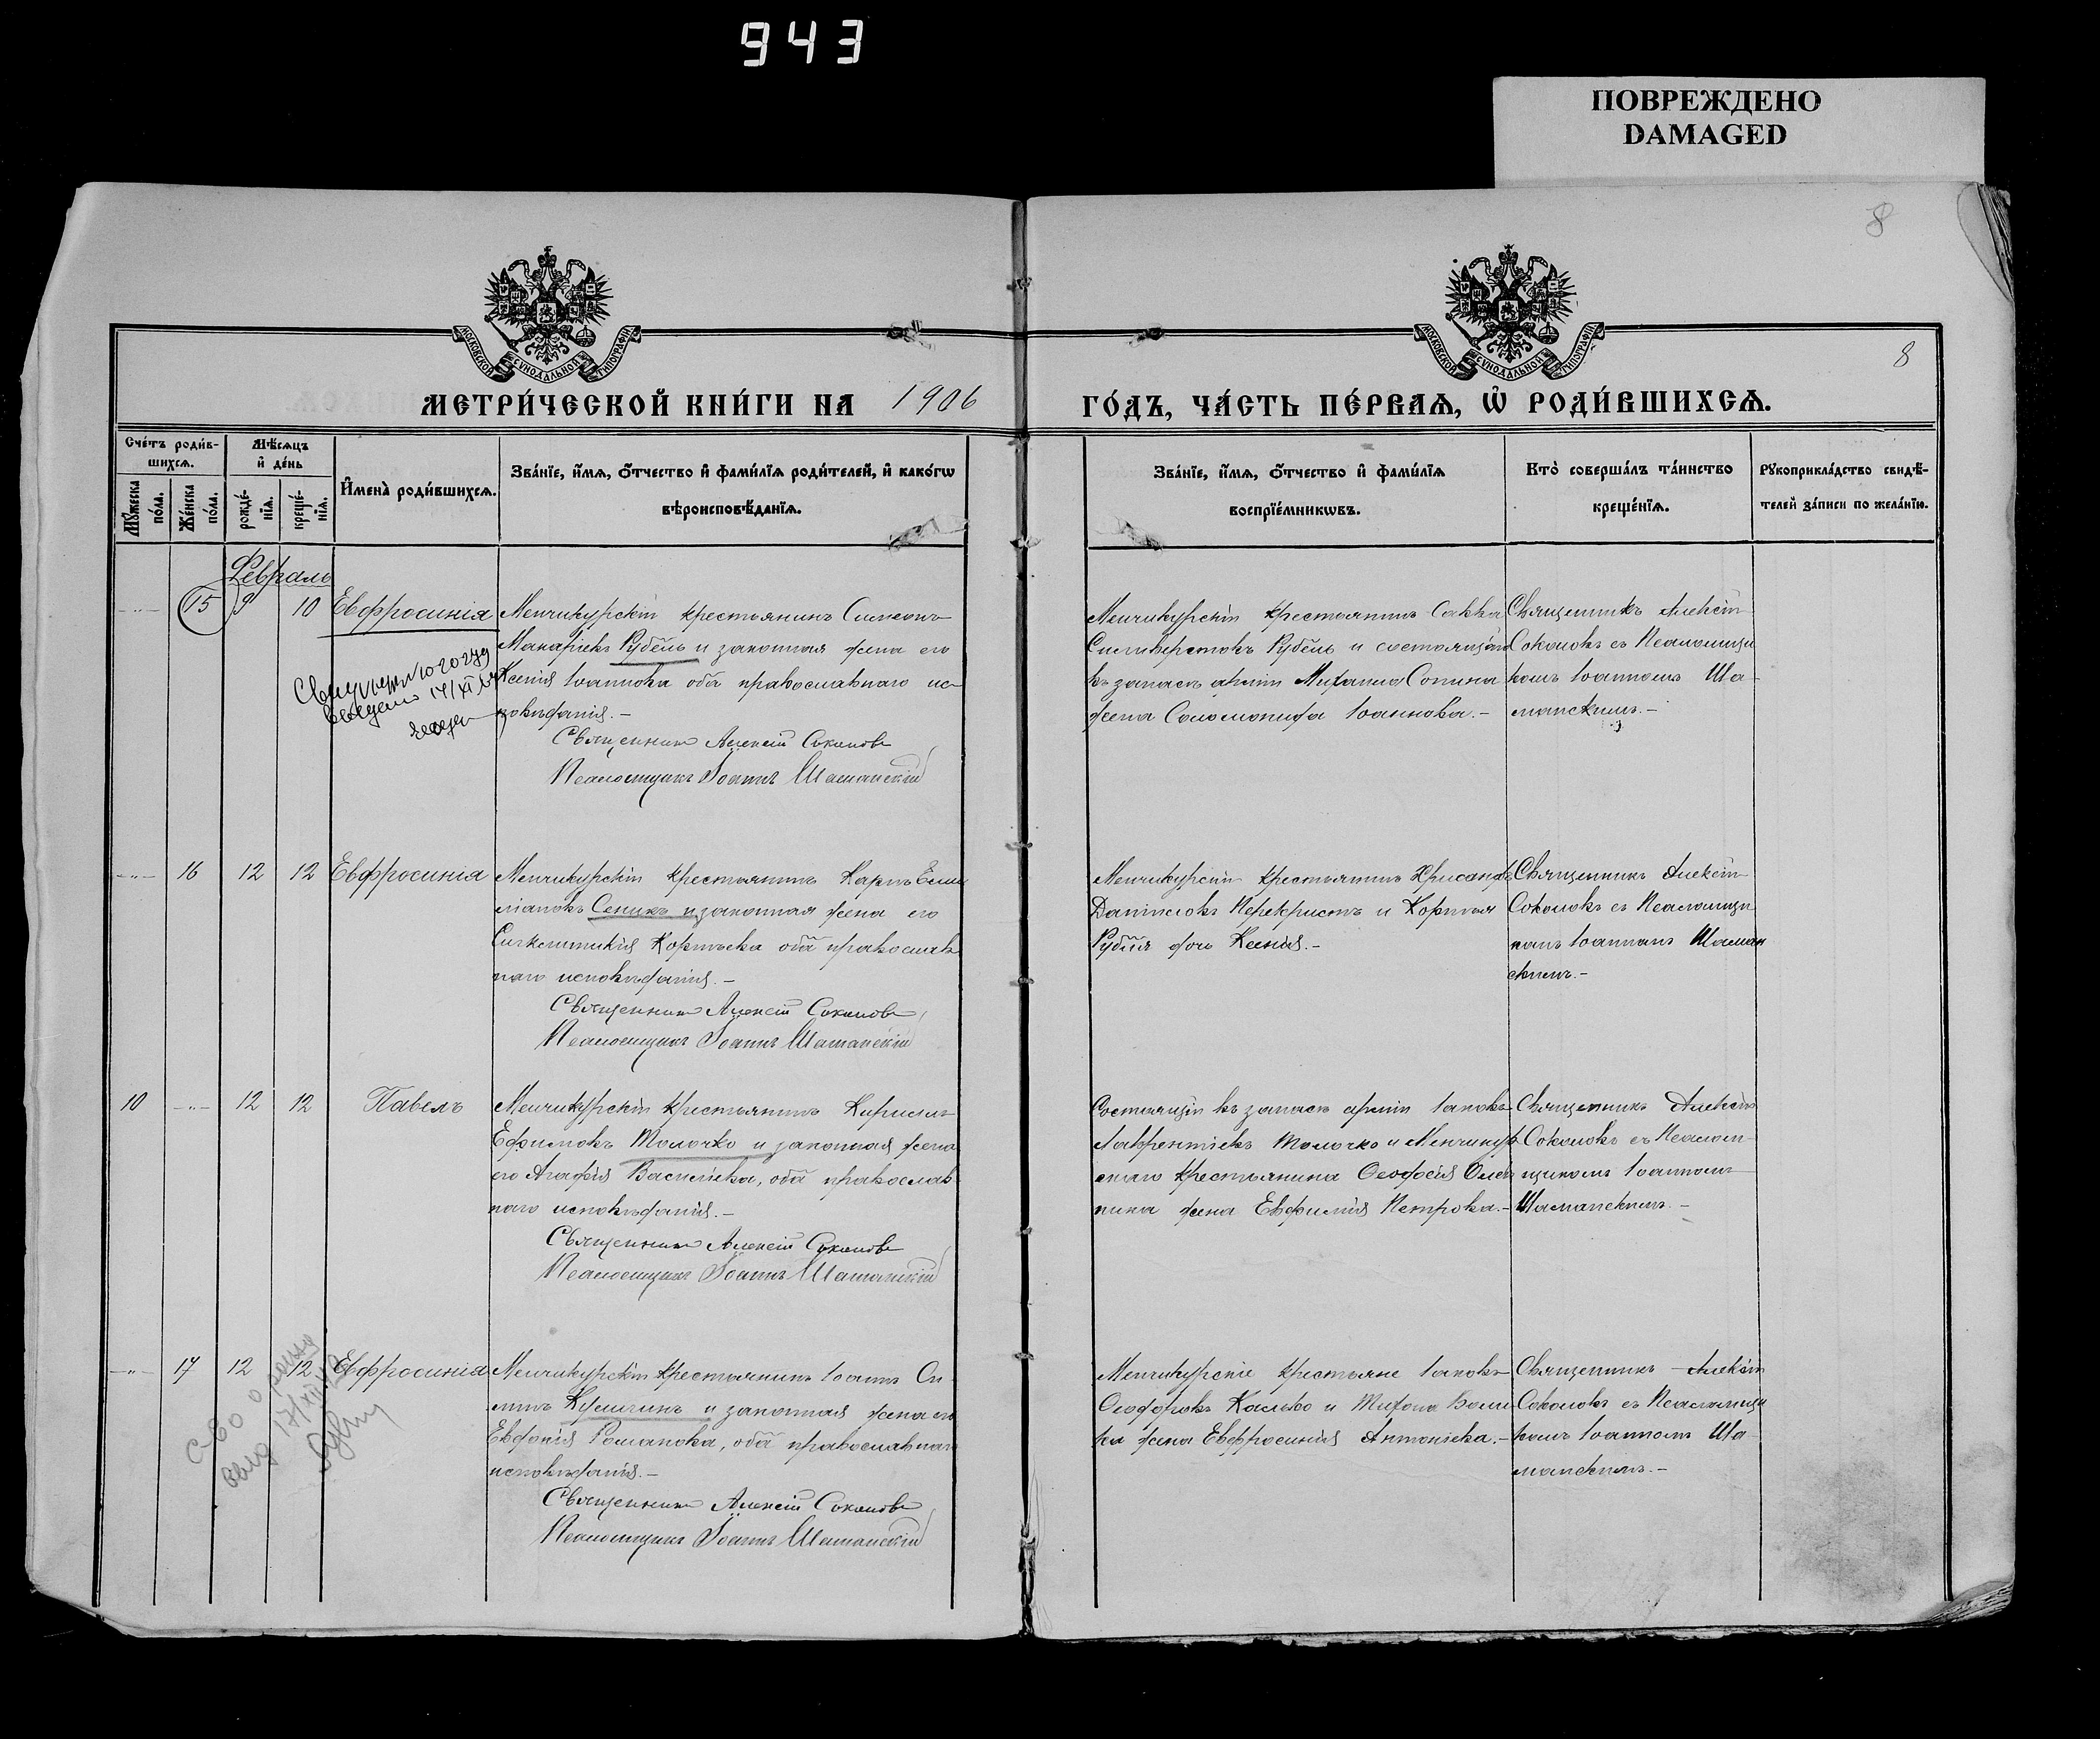 943
ПОВРЕЖДЕНО
DAMAGED
8
МОСКОВСКОЙ СѴНОДАЛЬНОЙ ТИПОГРАФІИ
МОСКОВСКОЙ СѴНОДАЛЬНОЙ ТИПОГРАФІИ
8
МЕТРИ́ЧЕСКОЙ КНИ́ГИ НА 1906
ГО́ДЪ, ЧА́СТЬ ПЕ́РВАѦ, Ѡ҆ РОДИ́ВШИХСѦ.
Сче́тъ роди́в-
шихсѧ.
Мꙋ́жеска по́ла.
Же́нска по́ла.
Мѣ́сѧцъ
и҆ де́нь
рожде́-
нїѧ.
креще́-
нїѧ.
И҆мена̀ роди́вшихсѧ.
Зва́нїе, и҆́мѧ, ѻ҆́тчество и҆ фами́лїѧ роди́телей, и҆ како́гѡ
вѣроисповѣ́данїѧ.
Зва́нїе, и҆́мѧ, ѻ҆́тчество и҆ фами́лїѧ
воспрїе́мникѡвъ.
Кто̀ соверша́лъ та́инство
креще́нїѧ.
Рꙋкоприкла́дство свидѣ́-
телей за́писи по жела́нїю.
Февраль
15 9 10 Евфросинія
Менчикурскій крестьянинъ Симеонъ
Макаріевъ Рубель и законная жена его
Ксенія Іоаннова оба православнаго ис-
повѣданія.-
Священникъ Алексій Соколовъ
Псаломщикъ Іоаннъ Шаманскій
Менчикурскій крестьянинъ Савва
Силиверстовъ Рубель и состоящаго
въ запасѣ арміи Михаила Сопина
жена Соломонида Іоаннова.-
Священникъ Алексій
Соколовъ съ Псаломщи
комъ Іоанномъ Ша-
манскимъ.-
16 12 12 Евфросинія
Менчикурскій крестьянинъ Карпъ Еми
ліановъ Сеникъ и законная жена его
Синклитикія оба православ-
наго исповѣданія.-
Священникъ Алексій Соколовъ
Псаломщикъ Іоаннъ Шаманскій
Менчикурскій крестьянинъ Хрисанфъ
Данииловъ Перекристъ и
Рубля дочь Ксенія.-
Священникъ Алексій
Соколовъ съ Псаломщи
комъ Іоанномъ Шаман
скимъ.-
10 12 12 Павелъ
Менчикурскій крестьянинъ Кириллъ
Ефимовъ Толочко и законная жена
его Агафія Васильева, оба православ-
наго исповѣданія.-
Священникъ Алексій Соколовъ
Псаломщикъ Іоаннъ Шаманскій
Состоящій въ запасѣ арміи Іаковъ
Лаврентіевъ Толочко и Менчикур
скаго крестьянина Ѳеодосія
жена Евфимія Петрова.-
Священникъ Алексій
Соколовъ съ Псалом-
щикомъ Іоанномъ
Шаманскимъ.-
17 12 12 Евфросинія
Менчикурскій крестьянинъ Іоаннъ
и законная жена его
Романова, оба православнаго
исповѣданія.-
Священникъ Алексій Соколовъ
Псаломщикъ Іоаннъ Шаманскій
Менчикурскіе крестьяне Іаковъ
Ѳеодоровъ и Тихона
жена Евфросинія Антоніева.-
Священникъ Алексій
Соколовъ съ Псаломщи
комъ Іоанномъ Ша-
манскимъ.-